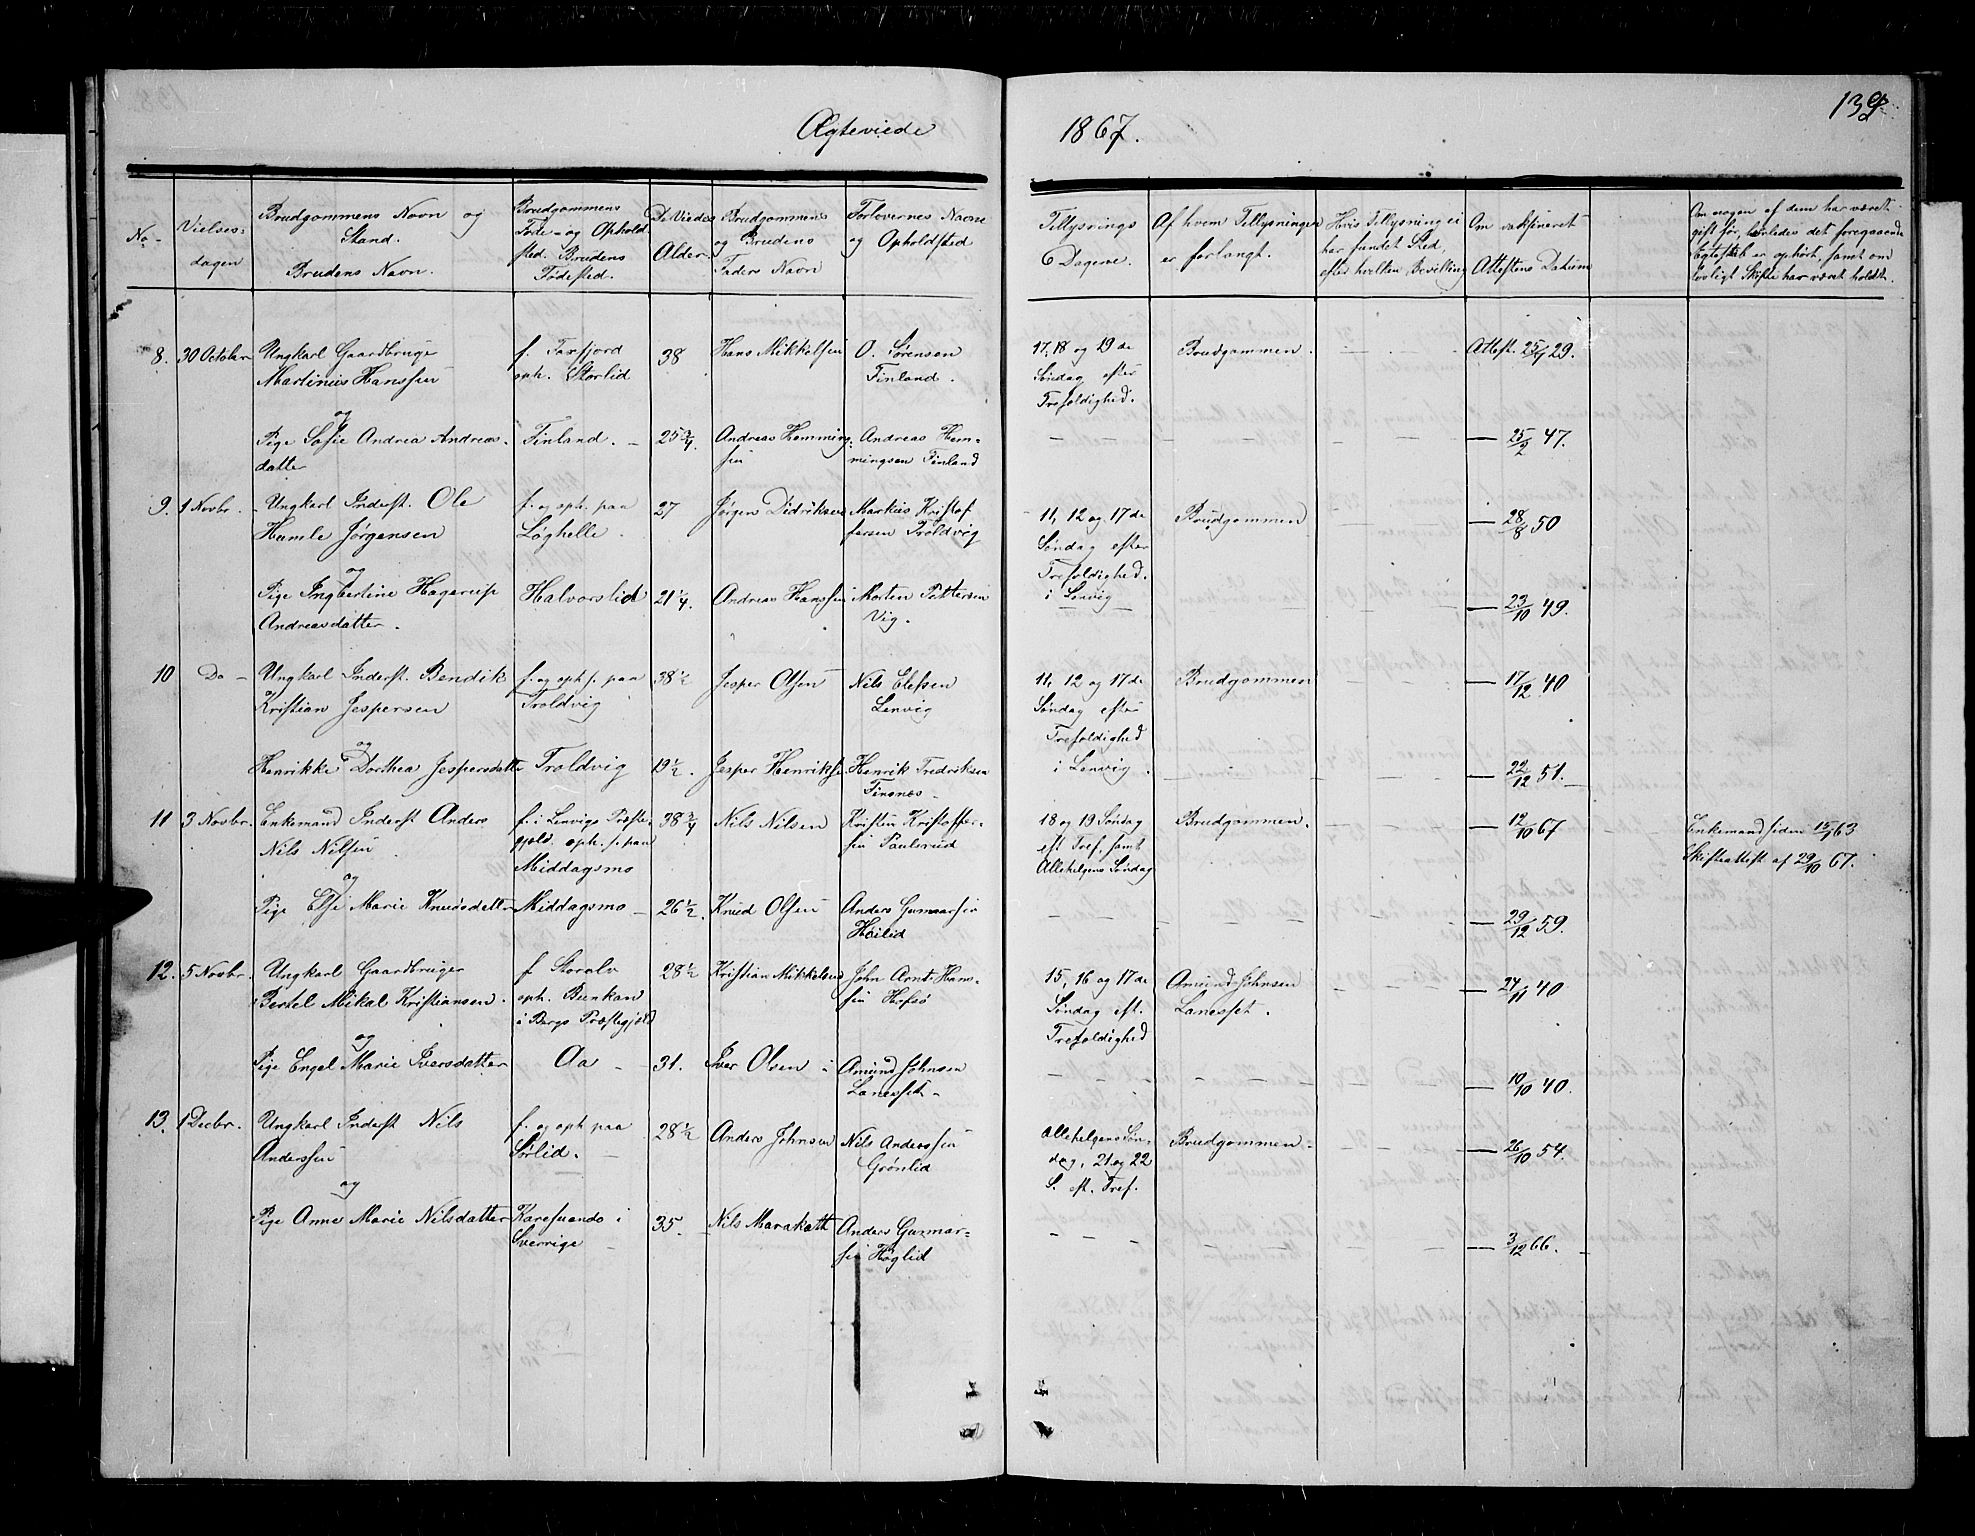 Ægteviede
1867.
139
No
Vielses-
dagen
Brudgommens Navn og
Stand.
Brudens Navn.
Brudgommens
Føde- og Ophold
sted. Brudens
Fødested.
De Viedes
Alder.
Brudgommens
og Brudens
Faders Navn
Forlovernes Navne
og Opholdsted
Tillysnings
Dagene.
Af hvem Tillysningen
er forlangt.
Hvis Tillysning ei
har fundet Sted,
efter hvilken Bevilling
Om vakfineret
Attestens Datum
Om nogen af dem har været
gift før, hvorledes det foregaaende
Ægteskab er ophørt, samt om
lovligt Skifte har været holdt.
8. 30 October Ungkarl Gaardbruger f. Taxfjord 38 Hans Mikkelsen O. Sørensen 17, 18 og 19 de Brudgommen. Attest. 25/9 29.
Martinus Hanssen oph. Storlid Finland. Søndag efter
og Trefoldighed.
Pige Sofie Andrea Andreas- Finland. 25 3/4. Andreas Hemming- Andreas Hem- 25/2 47.
datter sen mingsen Finland
9. 1 Novbr. Ungkarl Inderst. Ole f. og oph. paa 27 Jørgen Didriksen Markus Kristof 11, 12 og 17 de Brudgommen 28/8 50
Humle Jørgensen Løghelle. fersen Troldvig Søndag efter
og Trefoldighed.
Pige Ingbertine Hagerup Halvorslid 21 1/4. Andreas Hanssen Morten Pettersen i Lenvig 23/10 49.
Andreasdatter. Vig.
10 Do Ungkarl Inderst. Bendik f. og oph. f. paa 38 1/2 Jesper Olsen Nils Elefsen 11, 12 og 17 de Brudgommen 17/12 40
Kristian Jespersen Troldvig Lenvig Søndag efter
og Trefoldighed
Henrikke Dorthea Jespersdatter Troldvig 19 1/2. Jesper Henriksen Henrik Fredriksen i Lenvig. 22/12 51.
Finsnes
11 3 Novbr. Enkemand Inderst Anders f. i Lenvigs Præste- 38 3/4 Nils Nilsen Kristen Kristoffer- 18 og 19 Søndag Brudgommen. 12/10 67 Enkemand siden 15/1 63
Nils Nilsen gjeld. oph. f. paa sen Paulsrud eft Tref. samt Skifteattest af 29/10 67.
og Middagsmo Allehelgens Søndag
Pige Else Marie Knudsdatter Middagsmo 26 1/2. Knud Olsen Anders Gunnarsen 29/12 59.
Høilid
12. 5 Novbr. Ungkarl Gaardbruger f Storalv 28 1/2 Kristian Mikkelsen John Arnt Hans- 15, 16 og 17 de Amund Johnsen 24/11 40
Bertel Mikal Kristiansen. oph. Bunkan sen Hofsø Søndag eft. Lanesset.
og i Bergs Præstegjeld Trefoldighed
Pige Engel Marie Iversdatter Aa 31. Iver Olsen Amund Johnsen 10/10 40.
Lanesset
13. 1 Decbr. Ungkarl Inderst Nils f. og oph paa 28 1/2 Anders Johnsen Nils Anderssen Allehelgens Søn- Brudgommen. 26/10 54.
Anderssen Sørlid. Grønlid dag, 21 og 22
og S. eft. Tref.
Pige Anne Marie Nilsdatter Karesuando i 35. Nils Marakatt Anders Gunnar- 3/12 66.
Sverrige sen Høglid